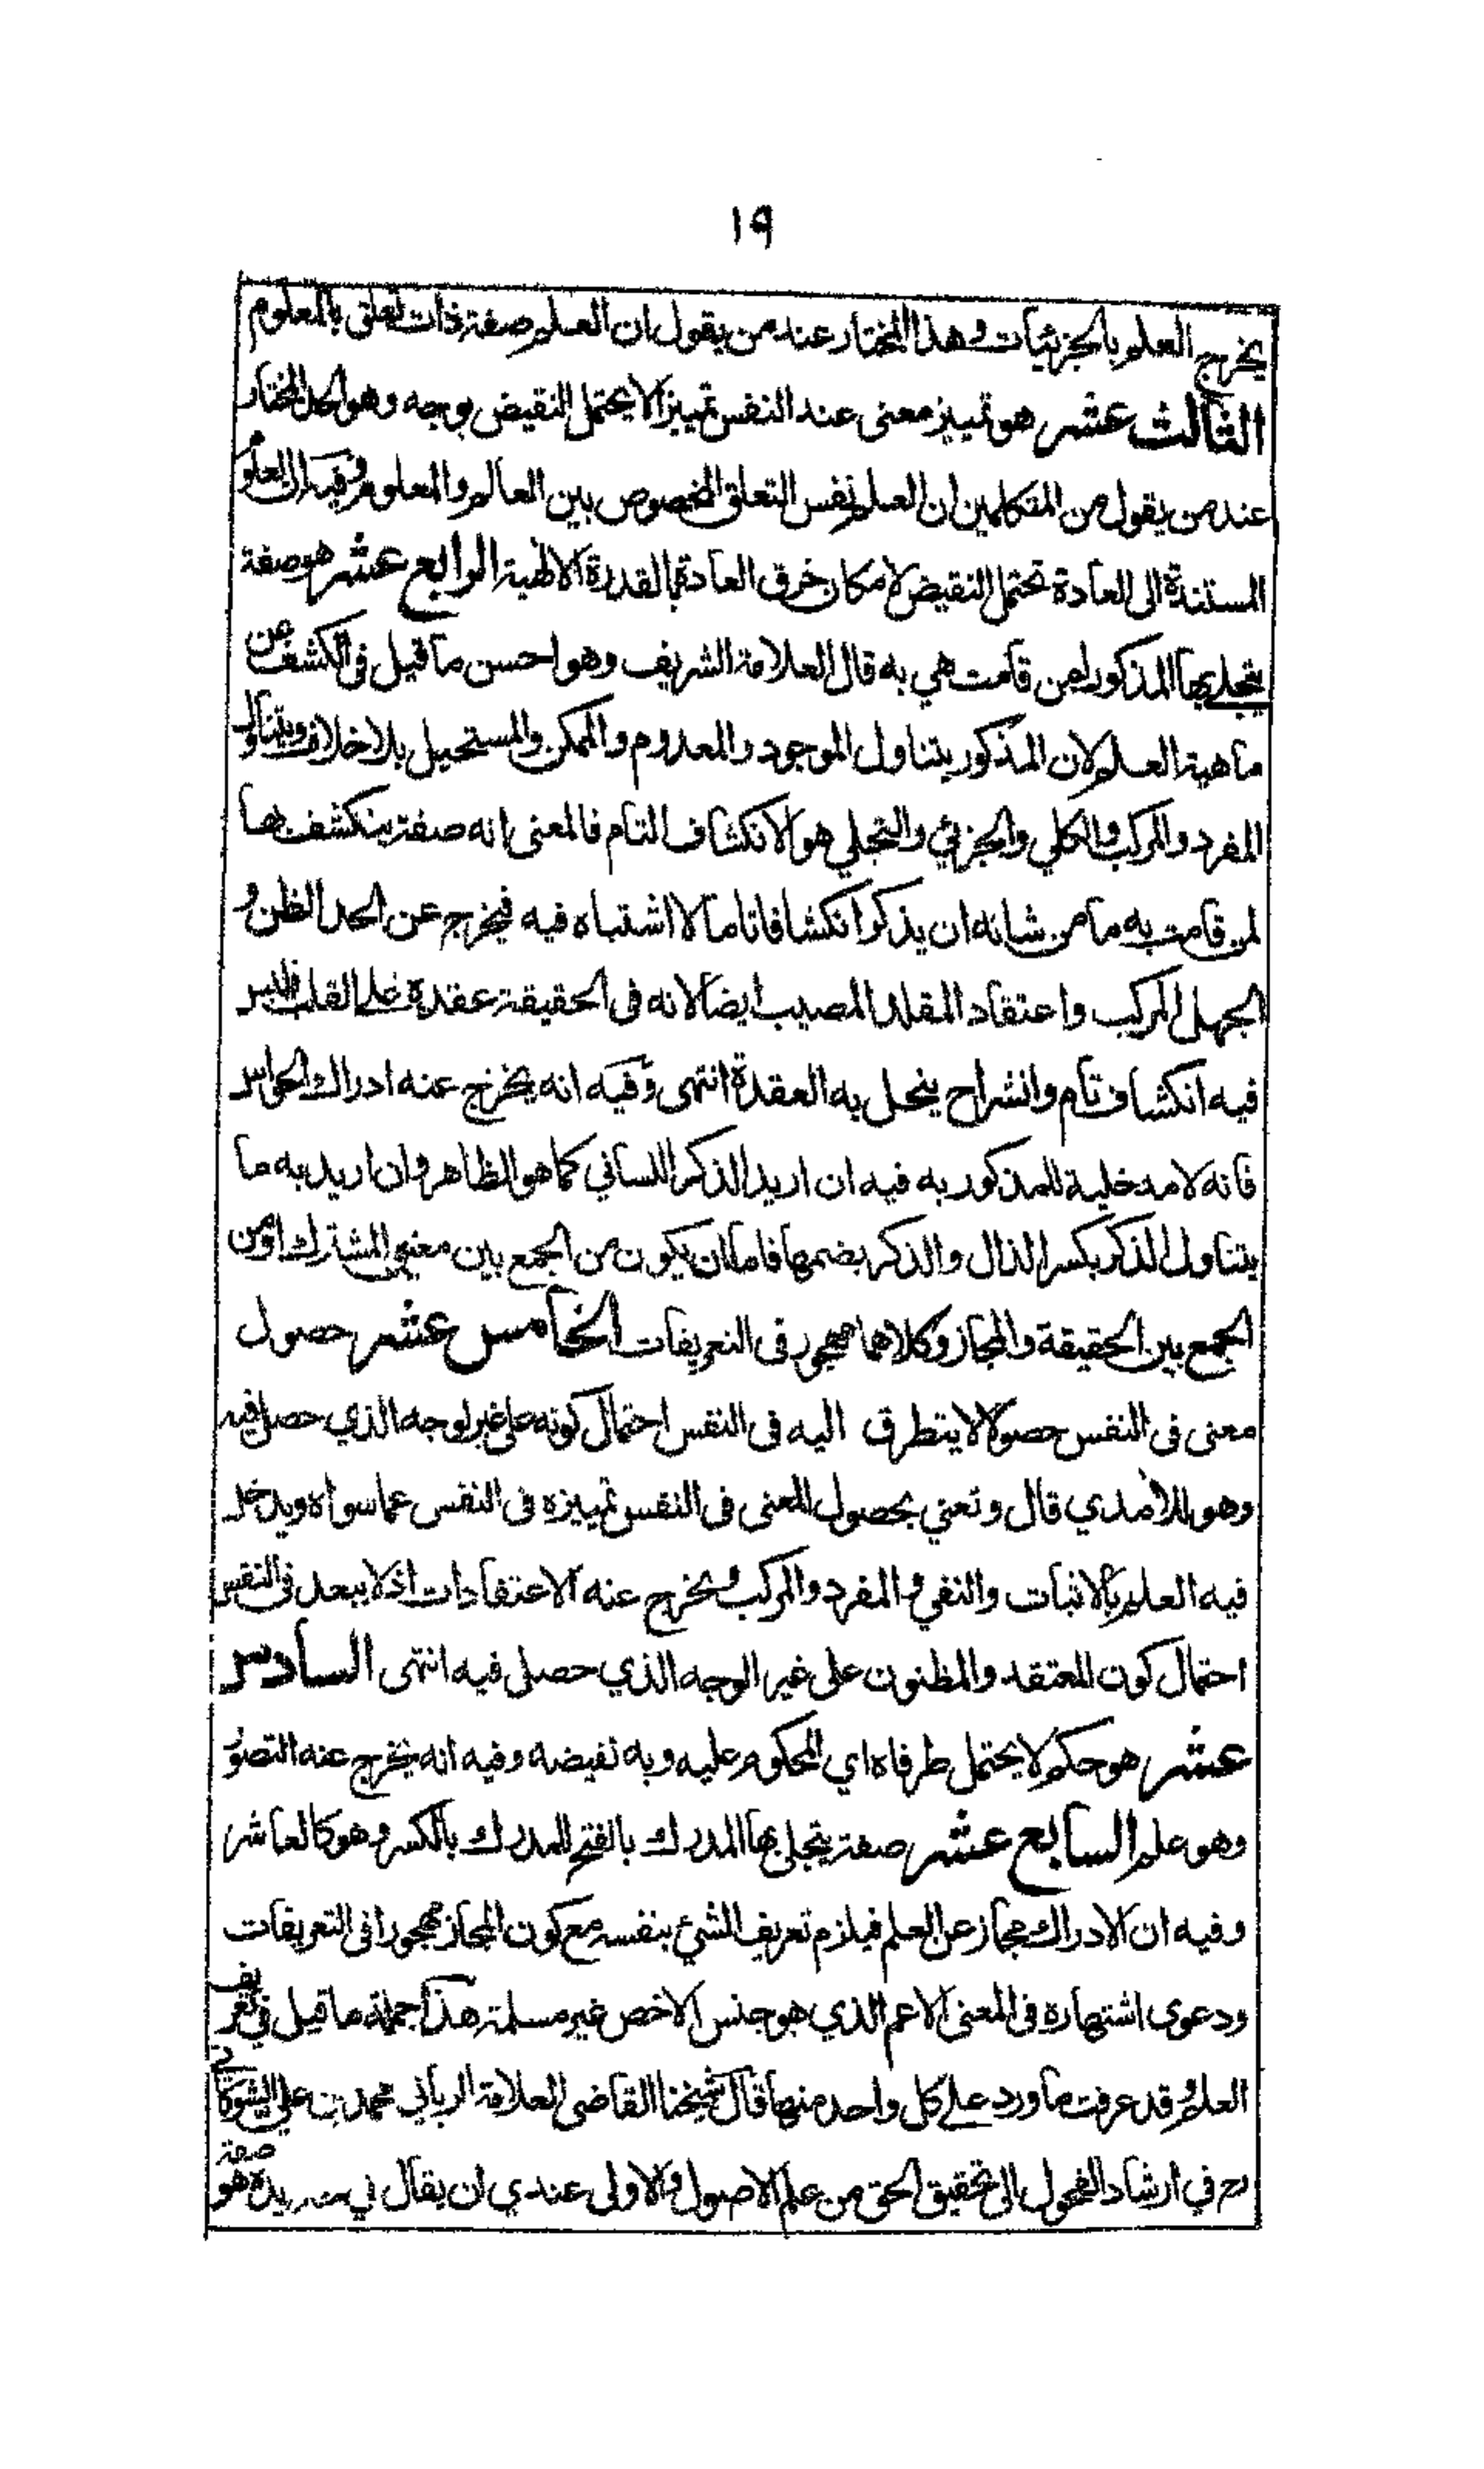 ١٩
يخرج العلم بالجزئيات وهذا المختار عند من يقول ان العلم صفة ذات تعلق بالمعلوم
الثالث عشر هو تمييز معنى عند النفس تمييزا لا يحتمل النقيض بوجه وهو الحد المختار
عند من يقول من المتكلمين ان العلم نفس التعلق المخصوص بين العالم والمعلوم وفيه ان العلوم
المستندة الى العادة تحتمل النقيض لامكان خرق العادة بالقدرة الالهية الرابع عشر هو صفة
يتجلى بها المذكور لمن قامت هي به قال العلامة الشريف وهو احسن ما قيل فى الكشف عن
ماهية العلم لان المذكور يتناول الموجود والمعدوم والممكن والمستحيل بلا خلاف ويتناول
المفرد والمركب والكلي والجزئي والتجلي هو الانكشاف التام فالمعنى انه صفة ينكشف بها
لمن قامت به ما من شانه ان يذكر انكشافا تاما لا اشتباه فيه فيخرج عن الحد الظن و
الجهل المركب واعتقاد المقلد المصيب ايضا لانه فى الحقيقة عقدة على القلب فليس
فيه انكشاف تام وانشراح ينحل به العقدة انتهى وفيه انه يخرج عنه ادراك الحواس
فانه لا مدخلية للمذكور به فيه ان اريد الذكر اللساني كما هو الظاهر وان اريد به ما
يتناول الذكر بكسر الذال والذكر بضمها فاما ان يكون من الجمع بين معنيي المشترك او من
الجمع بين الحقيقة والمجاز وكلاهما مهجور فى التعريفات الخامس عشر حصول
معنى فى النفس حصولا لا يتطرق اليه فى النفس احتمال كونه على غير لوجه الذي حصل فيه
وهو للآمدي قال ونعني بحصول المعنى فى النفس تمييزه فى النفس عما سواه ويدخل
فيه العلم بالاثبات والنفي والمفرد والمركب ويخرج عنه الاعتقادات اذ لا يبعد فى النفس
احتمال كون المعتقد والمظنون على غير الوجه الذي حصل فيه انتهى السادس
عشر هو حكم لا يحتمل طرفاه اي المحكوم عليه وبه نقيضه وفيه انه يخرج عنه التصور
وهو علم السابع عشر صفة يتجلى بها المدرك بالفتح للمدرك بالكسر وهو كالعاشر
وفيه ان الادراك مجاز عن العلم فيلزم تعريف الشيء بنفسه مع كون المجاز مهجورا فى التعريفات
ودعوى اشتهاره فى المعنى الاعم الذي هو جنس الاخص غير مسلمة هذا جملة ما قيل فى تعريف
العلم وقد عرفت ما ورد على كل واحد منها قال شيخنا القاضى العلامة الرباني محمد بن علي الشوكاني
رح في ارشاد الفحول الى تحقيق الحق من علم الاصول والاولى عندي ان يقال في هو صفة